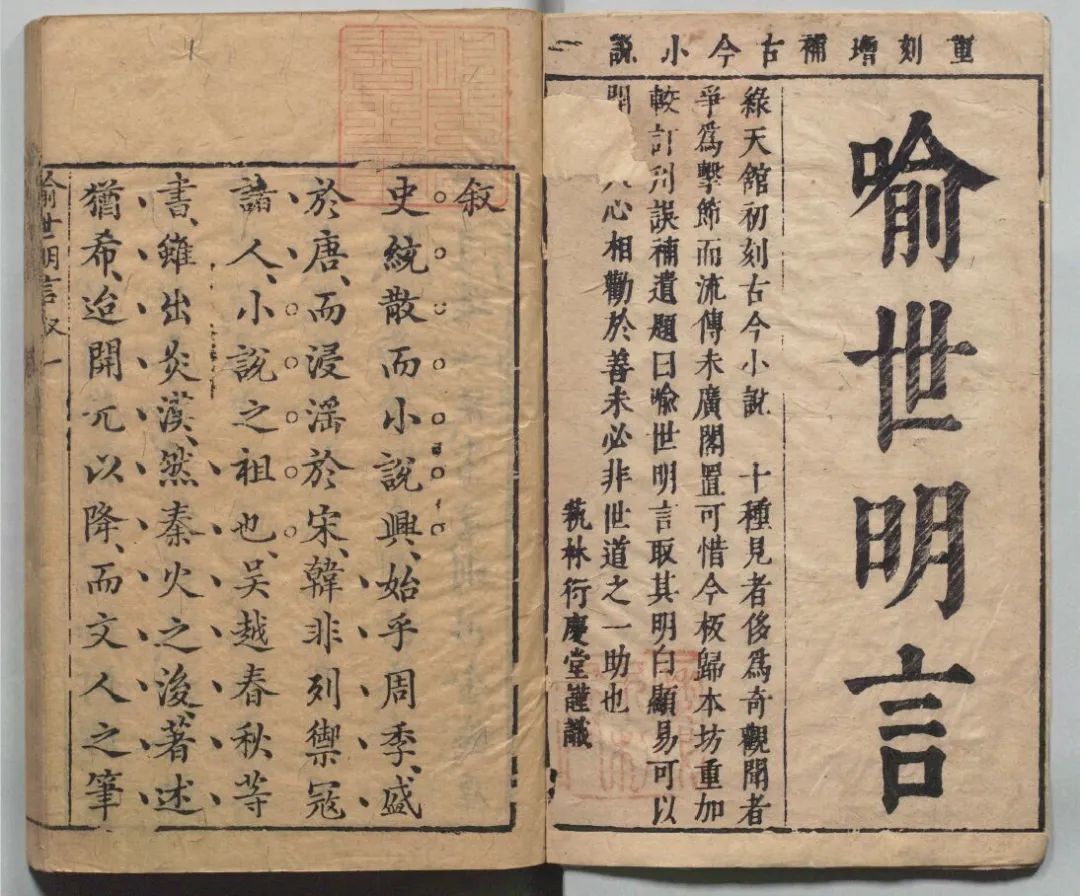 重刻增補古今小說
喻世明言
綠天館初刻古今小說 十種見者侈爲奇觀聞者
爭爲擊節而流傳未廣閣置可惜今板歸本坊重加
較訂刋誤補遺題曰喻世明言取其明白顯易可以
開 人心相勸於善未必非世道之一助也
藝林衍慶堂謹識
叙
史統散而小說興、始乎周季、盛
於唐、而浸淫於宋、韓非列禦寇
諸人、小說之祖也、吳越春秋等
書、雖出炎漢、然秦火之後、著述
猶希、迨開元以降、而文人之筆
喻世明言叙一